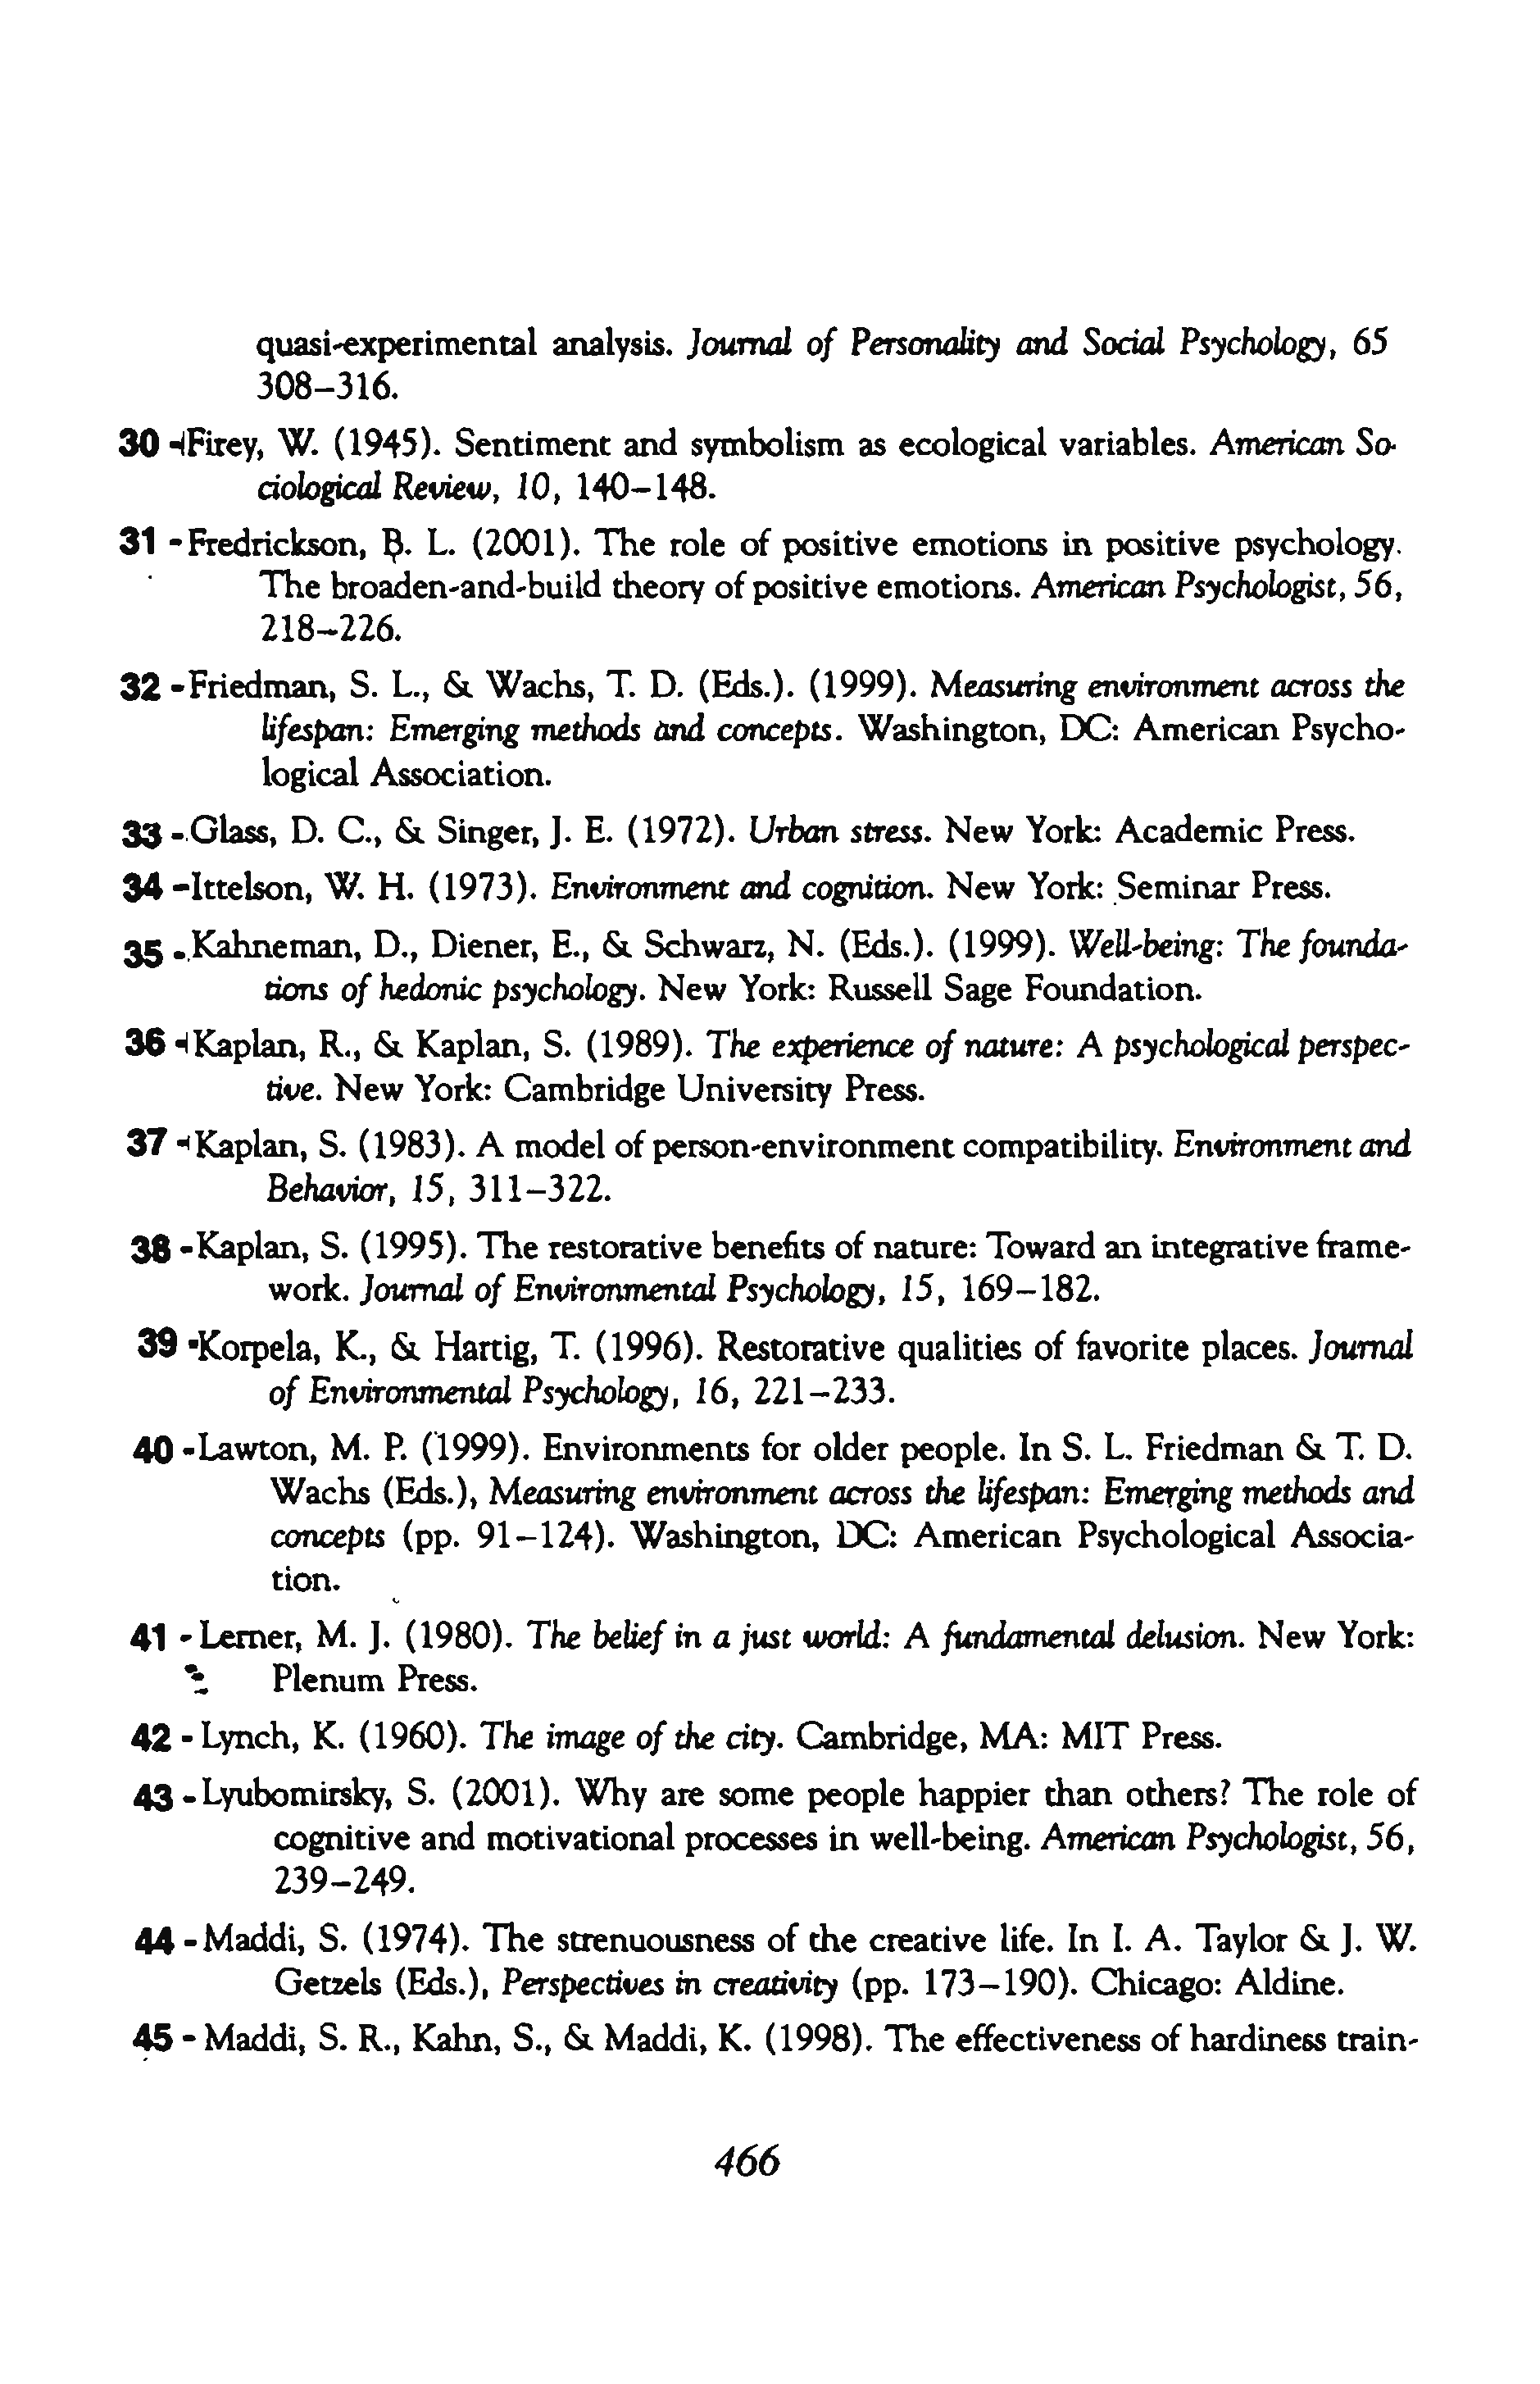 quasi-experimental analysis. Journal of Personality and Social Psychology, 65
308–316.
30 -Firey, W. (1945). Sentiment and symbolism as ecological variables. American So-
ciological Review, 10, 140–148.
31 -Fredrickson, B. L. (2001). The role of positive emotions in positive psychology.
The broaden-and-build theory of positive emotions. American Psychologist, 56,
218–226.
32 -Friedman, S. L., & Wachs, T. D. (Eds.). (1999). Measuring environment across the
lifespan: Emerging methods and concepts. Washington, DC: American Psycho-
logical Association.
33 -Glass, D. C., & Singer, J. E. (1972). Urban stress. New York: Academic Press.
34 -Ittelson, W. H. (1973). Environment and cognition. New York: Seminar Press.
35 -Kahneman, D., Diener, E., & Schwarz, N. (Eds.). (1999). Well-being: The founda-
tions of hedonic psychology. New York: Russell Sage Foundation.
36 -Kaplan, R., & Kaplan, S. (1989). The experience of nature: A psychological perspec-
tive. New York: Cambridge University Press.
37 -Kaplan, S. (1983). A model of person-environment compatibility. Environment and
Behavior, 15, 311–322.
38 -Kaplan, S. (1995). The restorative benefits of nature: Toward an integrative frame-
work. Journal of Environmental Psychology, 15, 169–182.
39 -Korpela, K., & Hartig, T. (1996). Restorative qualities of favorite places. Journal
of Environmental Psychology, 16, 221–233.
40 -Lawton, M. P. (1999). Environments for older people. In S. L. Friedman & T. D.
Wachs (Eds.), Measuring environment across the lifespan: Emerging methods and
concepts (pp. 91–124). Washington, DC: American Psychological Associa-
tion.
41 - Lerner, M. J. (1980). The belief in a just world: A fundamental delusion. New York:
Plenum Press.
42 - Lynch, K. (1960). The image of the city. Cambridge, MA: MIT Press.
43 - Lyubomirsky, S. (2001). Why are some people happier than others? The role of
cognitive and motivational processes in well-being. American Psychologist, 56,
239–249.
44 - Maddi, S. (1974). The strenuousness of the creative life. In I. A. Taylor & J. W.
Getzels (Eds.), Perspectives in creativity (pp. 173–190). Chicago: Aldine.
45 - Maddi, S. R., Kahn, S., & Maddi, K. (1998). The effectiveness of hardiness train-
466